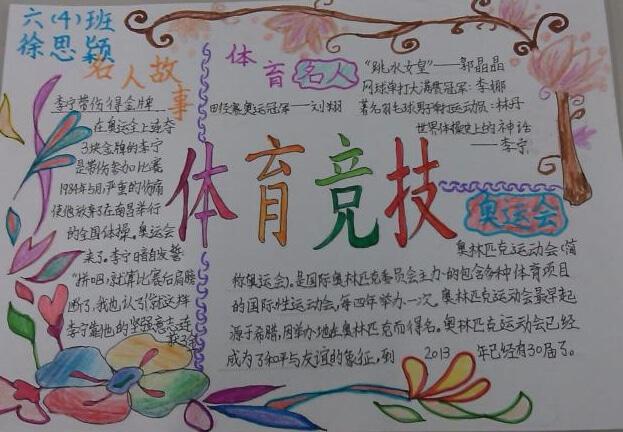 六(4)班
徐思颖
名人故事
李宁带伤得金牌
在奥运会上连夺
3块金牌的李宁
是带伤参加比赛
1984年5月,严重的伤痛
使他放弃了在南昌举行
的全国体操。奥运会
来了。李宁暗自发誓
"拼吧,就算比赛后肩膀
断了,我也认了!"就这样
李宁靠他的坚强意志连
获3金
体育名人
"跳水女皇"——郭晶晶
网球单打大满贯冠军:李娜
田径赛奥运冠军——刘翔
著名羽毛球男子单打运动员:林丹
世界体操史上的神话
——李宁
体育竞技
奥运会
奥林匹克运动会(简
称奥运会)。是国际奥林匹克委员会主办的包含各种体育项目
的国际性运动会,每四年举办一次。奥林匹克运动会最早起
源于希腊,因举办地在奥林匹克而得名。奥林匹克运动会已经
成为了和平与友谊的象征,到 2013 年已经有30届了。